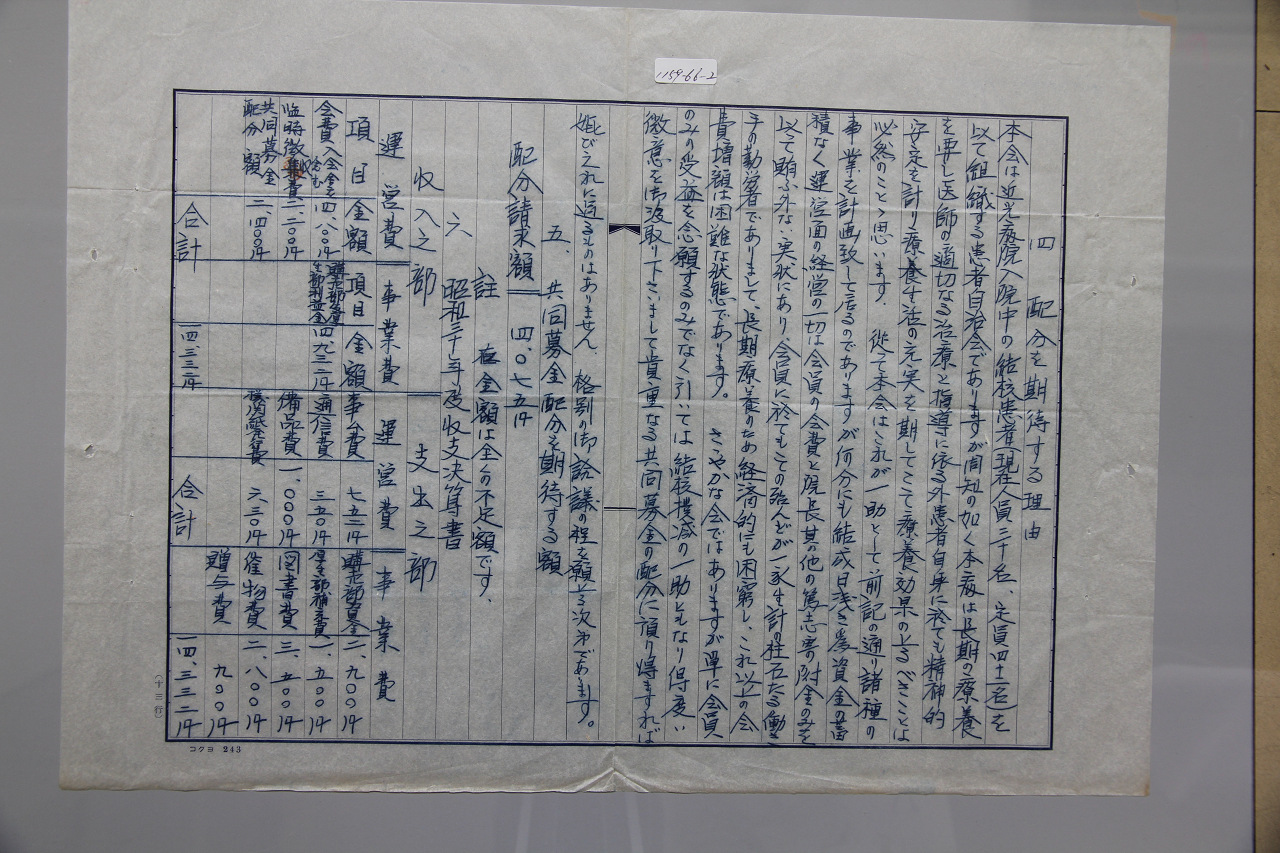 1159-66-2
四 配分を期待する理由
本会は近光病院入院中の結核患者(現在人員三十名、定員四十一名)を
以て組織する患者自治会でありますが周知の如く本病は長期の療養
を要し医師の適切なる治療と指導に依る外患者自身に於ても精神的
安定を計り療養生活の充実を期してこそ療養効果の上るべきことは
必然のことゝ思います。 従て本会はこれが一助として、前記の通り諸種の
事業を計画致して居るのでありますが何分にも結成日浅き為資金の蓄
積なく運営面の経営の一切は会員の会費と院長其の他の篤志寄附金のみを
以て賄ふ外ない実状にあり、会員に於てもその殆んどが一家生計の柱石たる働き
手の勤労者でありまして、長期療養のため経済的にも困窮し、これ以上の会
費増額は困難な状態であります。 さゝやかな会ではありますが単に会員
のみの受益を念願するのみでなく引いては結核撲滅の一助ともなり得度い
微意を御汲取り下さいまして貴重なる共同募金の配分に預り得ますれば
悦びこれに過るものはありません。 格別の御詮議の程を願上る次第であります。
五、 共同募金配分を期待する額
配分請求額 四、〇七五円
註 右金額は全くの不足額です。
六 昭和三十年度収支決算書
収入之部 支出之部
運営費 事業費 運営費 事業費
項目 金額 項目 金額 事ム費 七五二円 購売部資金 二、九〇〇円
会費 入会金を含む 四、八〇〇円 購売部厚生部利益金 四、九三二円 通信費 三五〇円 厚生部補充費 一、五〇〇円
臨時徴収費 二、二〇〇円 備品費 一、〇〇〇円 図書費 三、五〇〇円
共同募金配分額 二、四〇〇円 機関紙発行費 六三〇円 催物費 二、八〇〇円
贈与費 九〇〇円
合計 一四、三三二円 合計 一四、三三二円
(十三行)
コクヨ 243